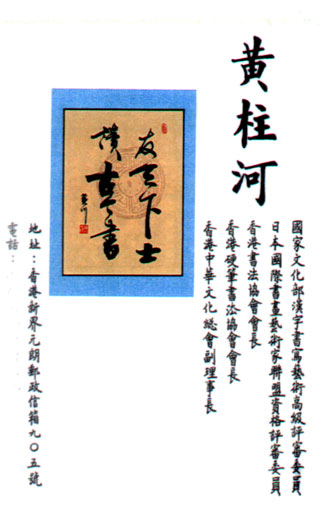 黄柱河
國家文化部漢字書寫藝術高級評審委員
日本國際書畫藝術家聯盟資格評審委員
香港書法協會會長
香港硬筆書法協會會長
香港中華文化總會副理事長
友天下士
讀古今書
地址：香港新界元朗郵政信箱九〇五號
電話：